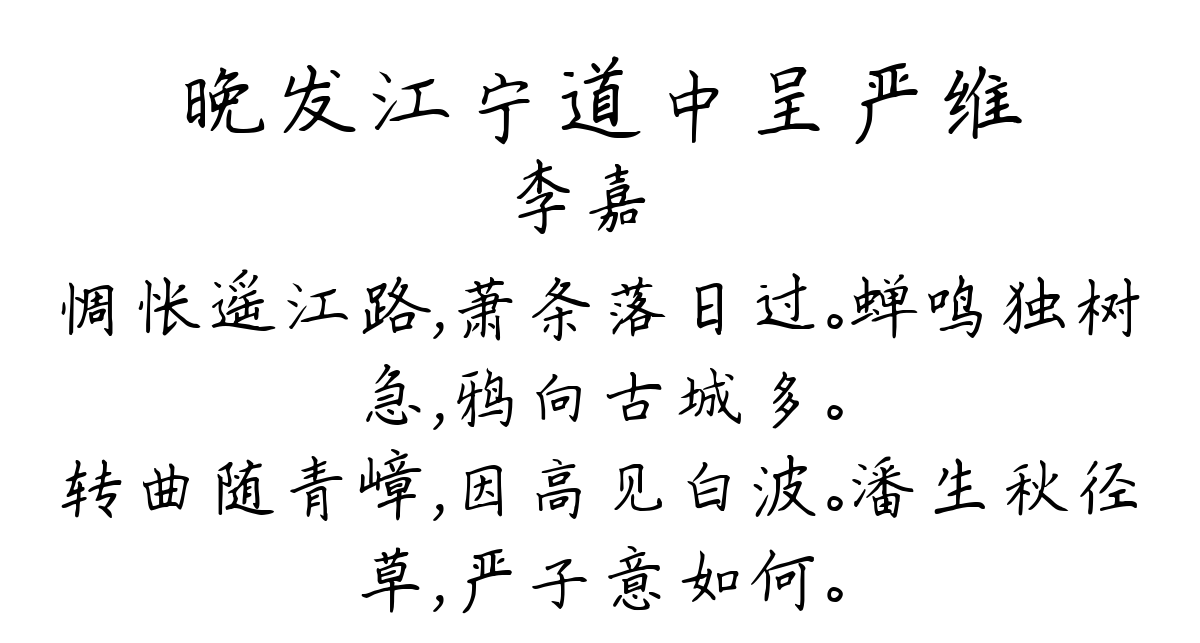 晚发江宁道中呈严维
李嘉
惆怅遥江路,萧条落日过。蝉鸣独树
急,鸦向古城多。
转曲随青嶂,因高见白波。潘生秋径
草,严子意如何。